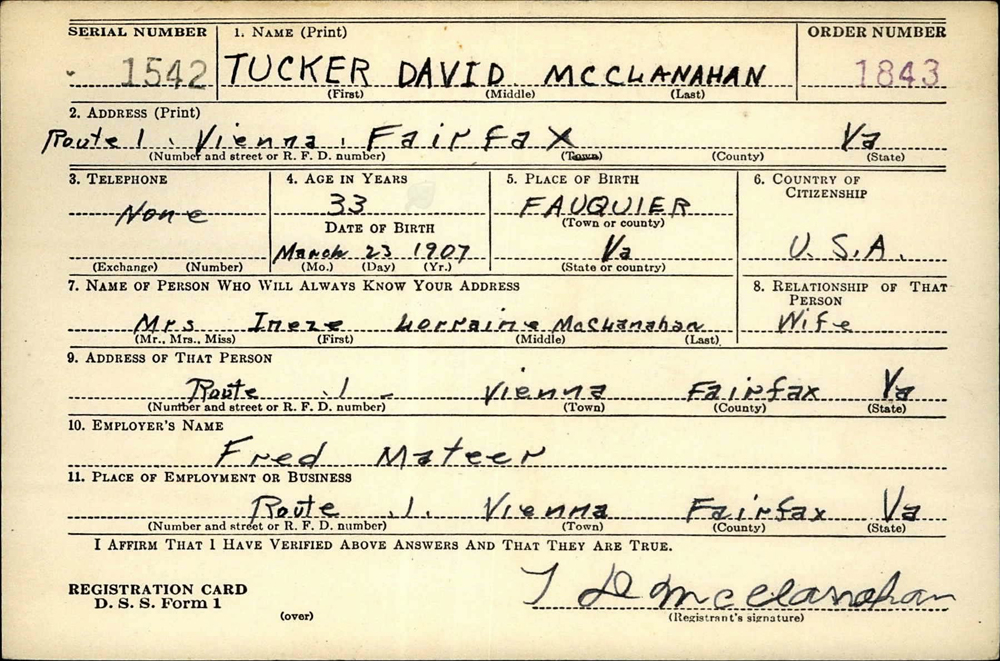 SERIAL NUMBER 1. NAME (Print) ORDER NUMBER
1542 TUCKER DAVID MCCLANAHAN 1843
(First) (Middle) (Last)
2. ADDRESS (Print)
Route 1. Vienna. Fairfax Va
(Number and street or R. F. D. number) (Town) (County) (State)
3. TELEPHONE 4. AGE IN YEARS 5. PLACE OF BIRTH 6. COUNTRY OF
CITIZENSHIP
None 33 FAUQUIER
DATE OF BIRTH (Town or county)
March 23 1907 Va U.S.A.
(Exchange) (Number) (Mo.) (Day) (Yr.) (State or country)
7. NAME OF PERSON WHO WILL ALWAYS KNOW YOUR ADDRESS 8. RELATIONSHIP OF THAT
PERSON
Mrs Ineze Lorraine McClanahan Wife
(Mr., Mrs., Miss) (First) (Middle) (Last)
9. ADDRESS OF THAT PERSON
Route 1 - Vienna Fairfax Va
(Number and street or R. F. D. number) (Town) (County) (State)
10. EMPLOYER'S NAME
Fred Mateer
11. PLACE OF EMPLOYMENT OR BUSINESS
Route 1. Vienna Fairfax Va
(Number and street or R. F. D. number) (Town) (County) (State)
I AFFIRM THAT I HAVE VERIFIED ABOVE ANSWERS AND THAT THEY ARE TRUE.
REGISTRATION CARD
D. S. S. Form 1 T D McClanahan
(over) (Registrant's signature)